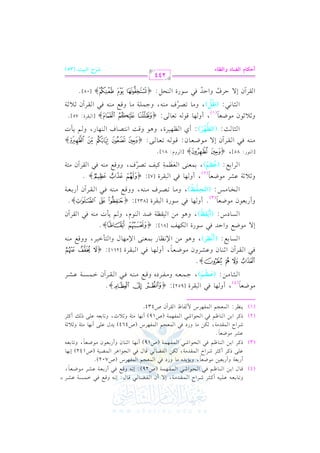 أحكام الضاد والظاء
شرح البيت (٥٣)
٤٤٣
القرآن إلا حرفٌ واحدٌ في سورة النحل: ﴿تَسْتَخِفُّونَهَا يَوْمَ ظَعْنِكُمْ﴾ [٨٠].
الثاني: (الظِّل)، وما تصرَّف منه، وجملة ما وقع منه في القرآن ثلاثة
وثلاثون موضعاً(١)، أولها قوله تعالى: ﴿وَظَلَّلْنَا عَلَيْكُمُ الْغَمَامَ﴾ [البقرة: ٥٧].
الثالث: (الظُّهْر): أي الظهيرة، وهو وقت انتصاف النهار، ولم يأت
منه في القرآن إلا موضعان: قوله تعالى: ﴿وَحِينَ تَضَعُونَ ثِيَابَكُم مِّنَ الظَّهِيرَةِ﴾
[النور: ٥٨]، ﴿وَحِينَ تُظْهِرُونَ﴾ [الروم: ١٨].
الرابع: (العُظْم): بمعنى العظَمة كيف تصرَّف، ووقع منه في القرآن مئة
وثلاثة عشر موضعاً(٢)، أولها في البقرة [٧]: ﴿وَلَهُمْ عَذَابٌ عَظِيمٌ﴾.
الخامس: (الحِفْظ)، وما تصرف منه، ووقع منه في القرآن أربعة
وأربعون موضعاً(٣). أولها في سورة البقرة [٢٣٨]: ﴿حَافِظُوا عَلَى الصَّلَوَاتِ﴾.
السادس: (أَيْقِظْ)، وهو من اليقظة ضد النوم، ولم يأت منه في القرآن
إلا موضع واحد في سورة الكهف [١٨]: ﴿وَتَحْسَبُهُمْ أَيْقَاظًا﴾.
السابع: (أَنْظِرْ)، وهو من الإنظار بمعنى الإمهال والتأخير، ووقع منه
في القرآن اثنان وعشرون موضعاً، أولها في البقرة [١٦٢]: ﴿لَا يُخَفَّفُ عَنْهُمُ
الْعَذَابُ وَلَا هُمْ يُنظَرُونَ﴾.
الثامن: (عَظْم): جمعه ومفرده وقع منه في القرآن خمسة عشر
موضعاً(٤)، أولها في البقرة [٢٥٩]: ﴿وَانظُرْ إِلَى الْعِظَامِ﴾.
(١) ينظر: المعجم المفهرس لألفاظ القرآن ص٤٣٤.
(٢) ذكر ابن الناظم في الحواشي المفهمة (ص٩١) أنها مئة وثلاث، وتابعه على ذلك أكثر
شراح المقدمة، لكن ما ورد في المعجم المفهرس (ص٤٦٤) يدل على أنها مئة وثلاثة
عشر موضعاً.
(٣) ذكر ابن الناظم في الحواشي المفهمة (ص٩١) أنها اثنان وأربعون موضعاً، وتابعه
على ذكر أكثر شراح المقدمة، لكن الفضالي قال في الجواهر المضية (ص٢٤١) إنها
أربعة وأربعين موضعاً، ويؤيده ما ورد في المعجم المفهرس (ص٢٠٧).
(٤) قال ابن الناظم في الحواشي المفهمة (ص٩٢): إنه وقع في أربعة عشر موضعاً،
وتابعه عليه أكثر شراح المقدمة، إلا أن الفضالي قال: إنه وقع في خمسة عشر =